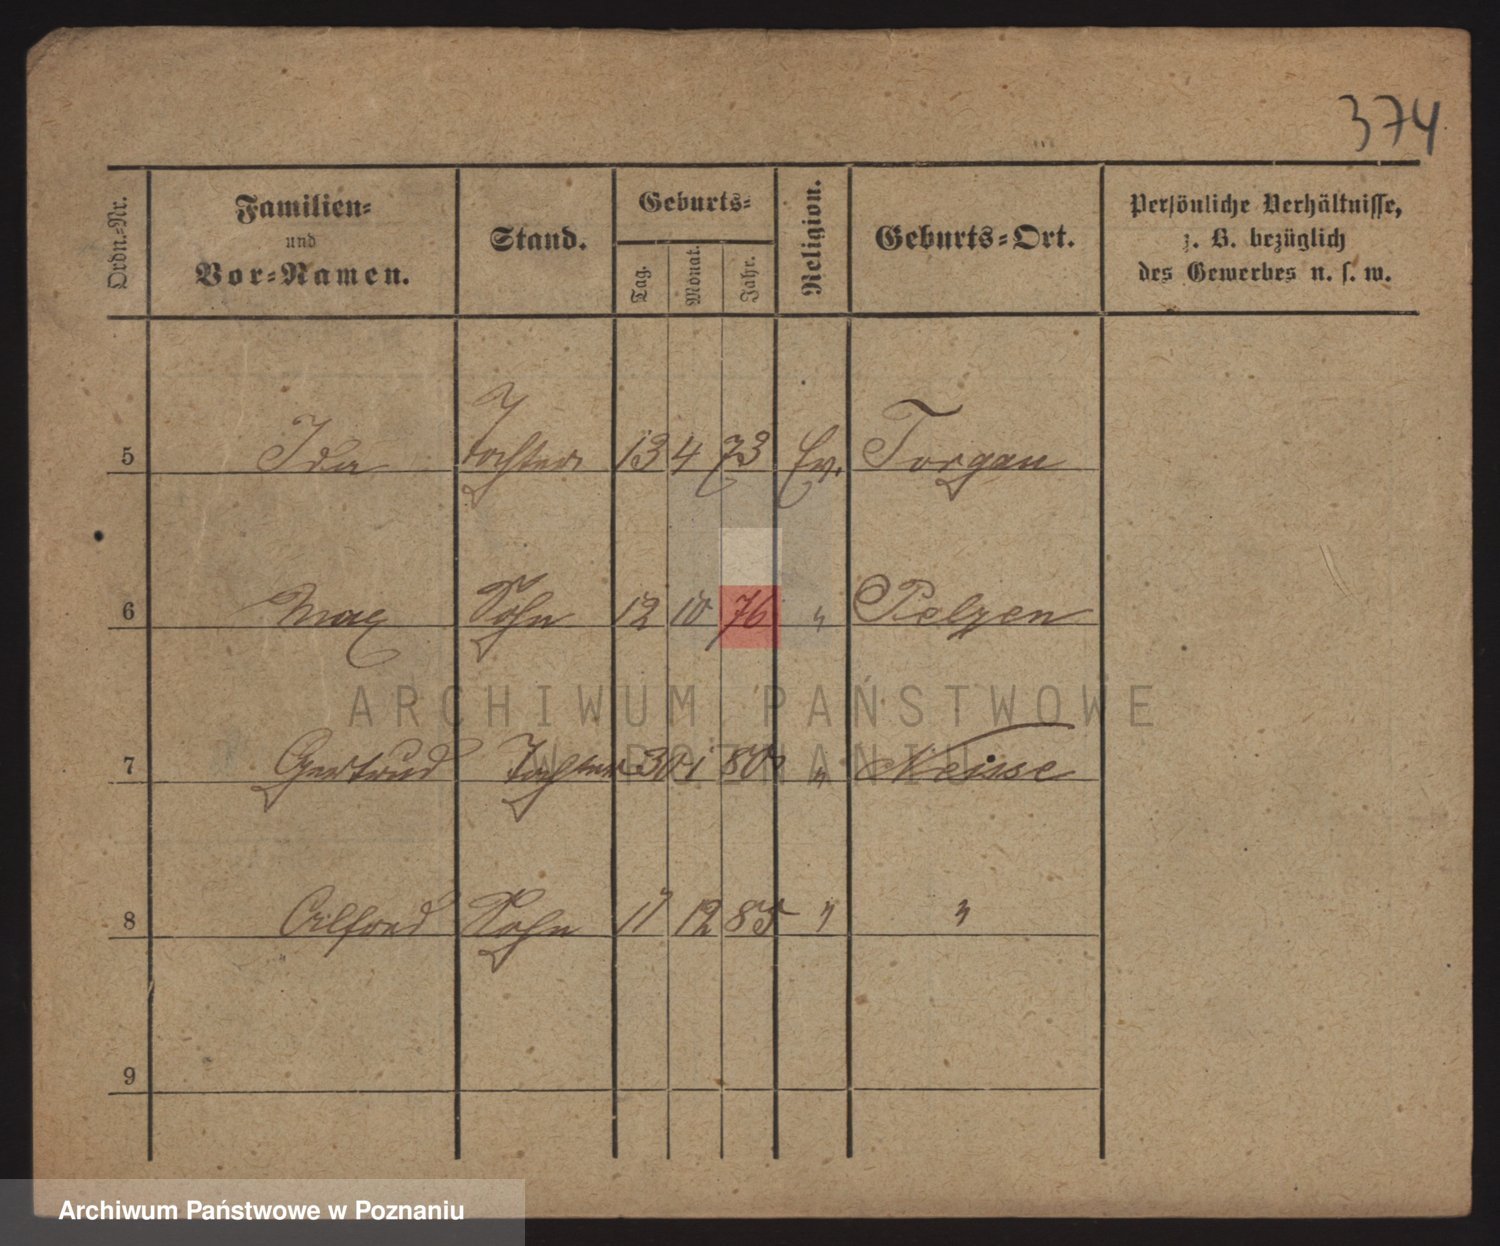 374
Ordn.-Nr.
Familien-
und
Vor-Namen.
Stand.
Geburts-
Tag.
Monat.
Jahr.
Religion.
Geburts-Ort.
Persönliche Verhältnisse,
z. B. bezüglich
des Gewerbes u. s. w.
5 Ida Tochter 13 4 73 Ev. Torgau
6 Max Sohn 12 10 76 " Pelzen
ARCHIWUM PAŃSTWOWE
W POZNANIU
7 Gertrud Tochter 30 1 80 " Neisse
8 Alfred Sohn 17 12 85 " "
9
Archiwum Państwowe w Poznaniu